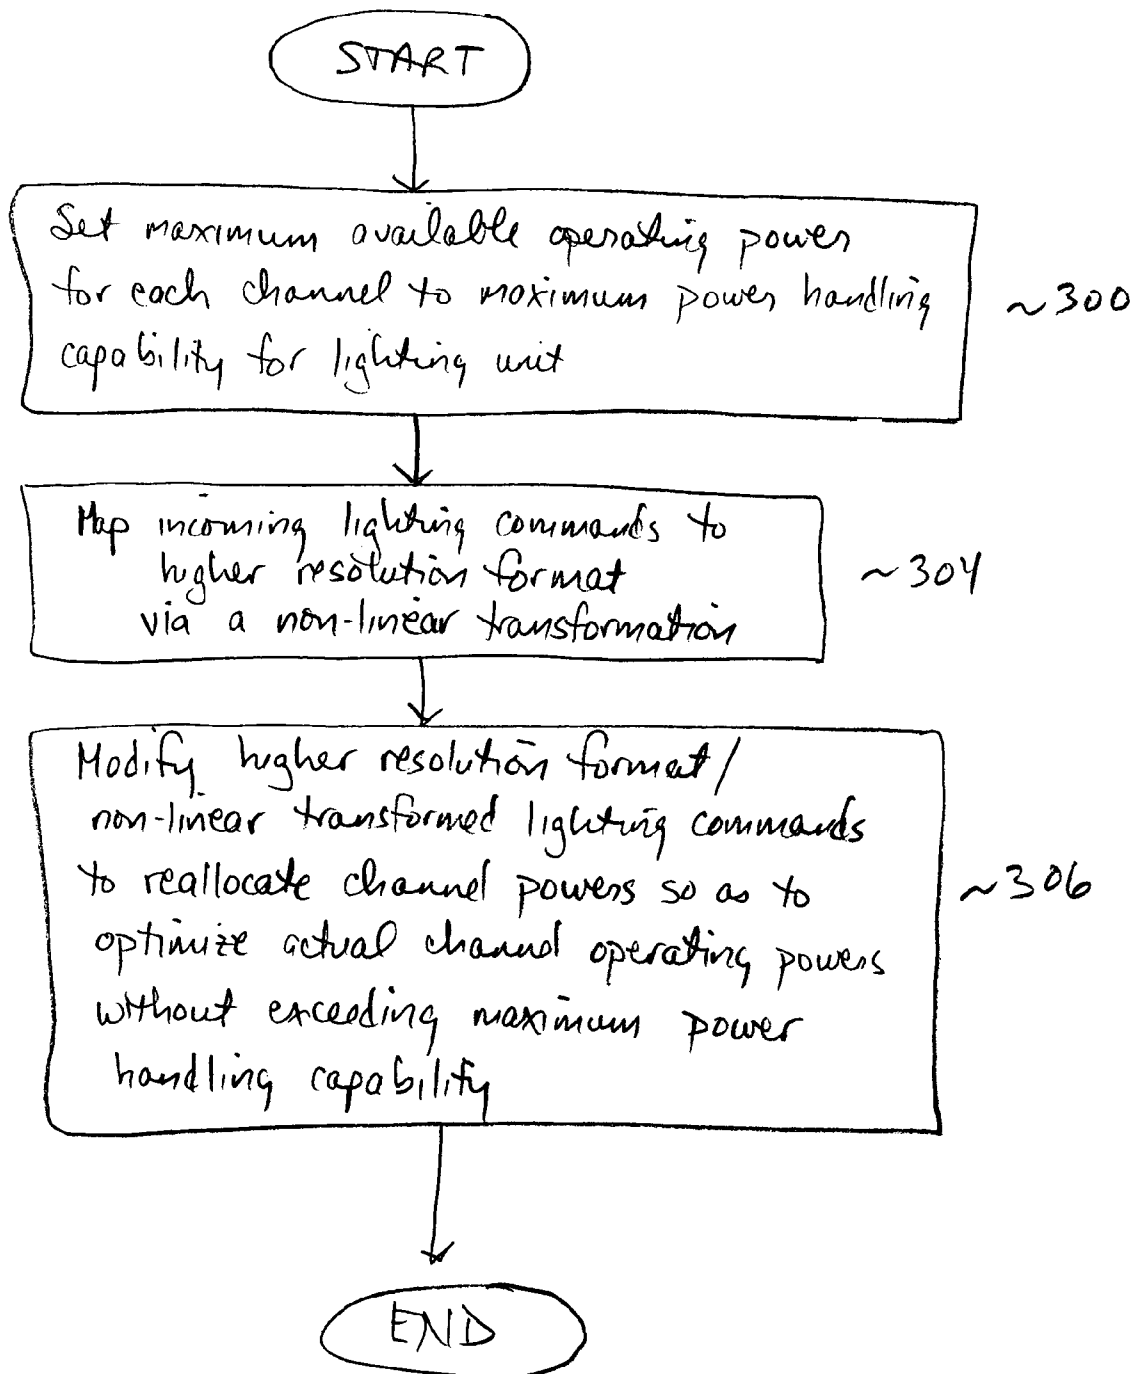 START
Set maximum available operating power
for each channel to maximum power handling
capability for lighting unit
~300
Map incoming lighting commands to
higher resolution format
via a non-linear transformation
~304
Modify higher resolution format/
non-linear transformed lighting commands
to reallocate channel powers so as to
optimize actual channel operating powers
without exceeding maximum power
handling capability
~306
END